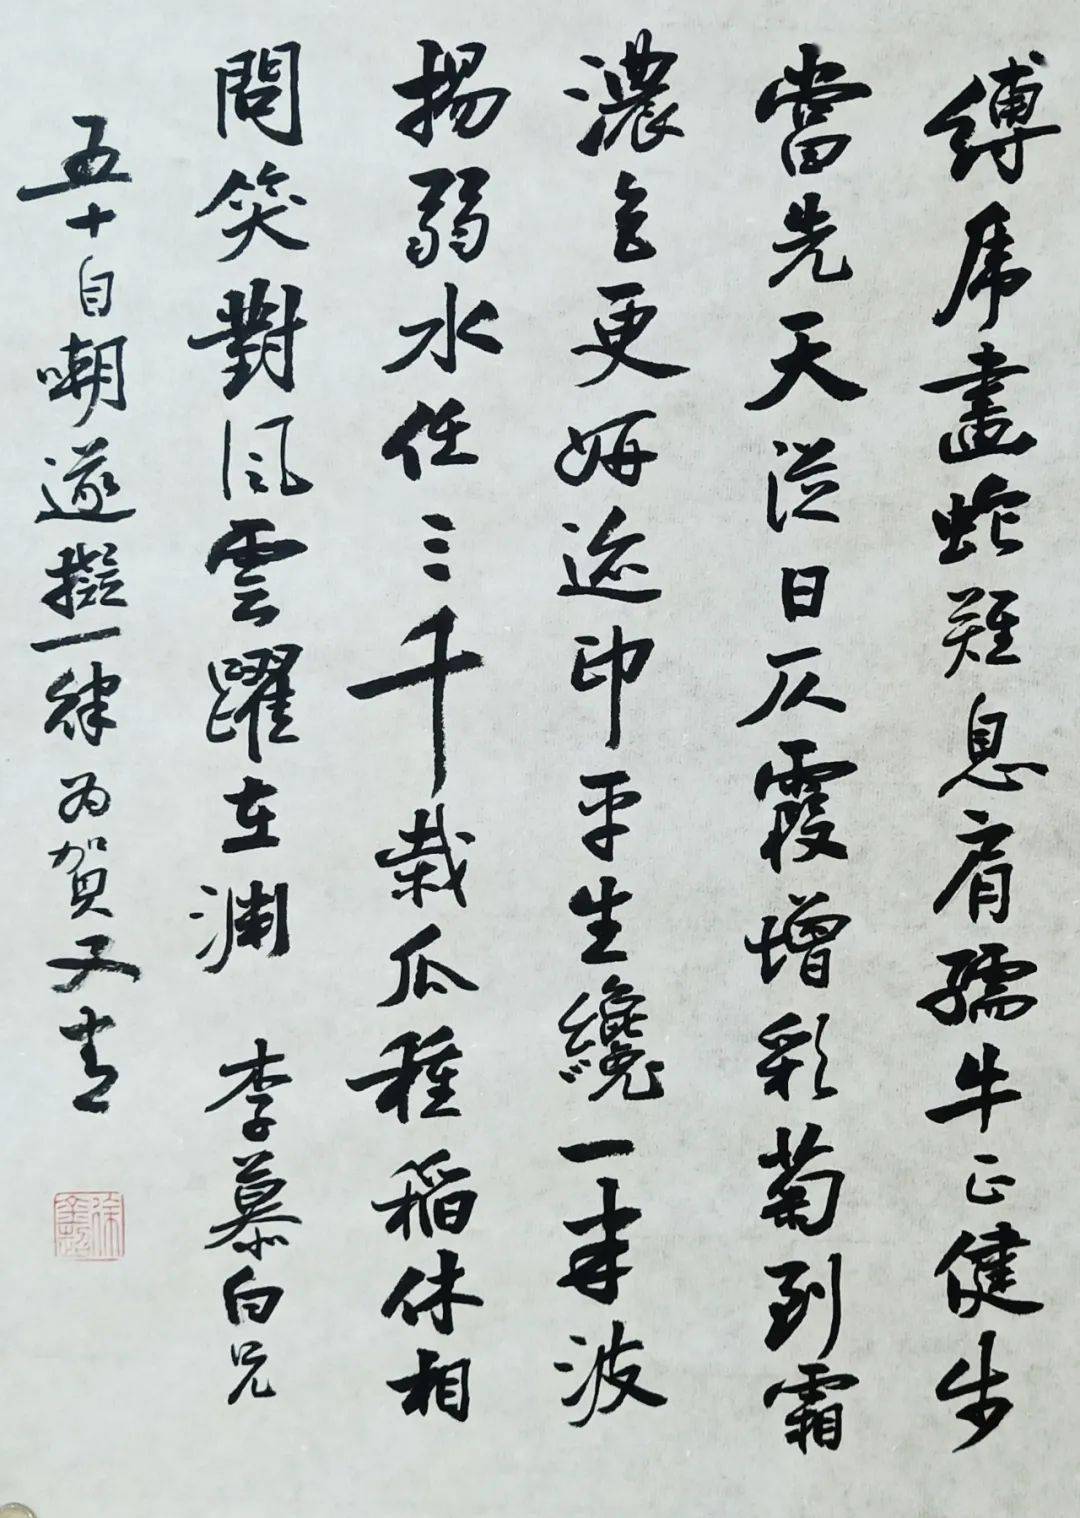 縛虎畫蛇難息肩孺牛正健步
當先天從日仄霞增彩菊到霜
濃色更妍迹印平生纔一半波
揚弱水任三千栽瓜種稻休相
問笑對風雲躍在淵 李慕白兄
五十自嘲遂擬一律為賀文書